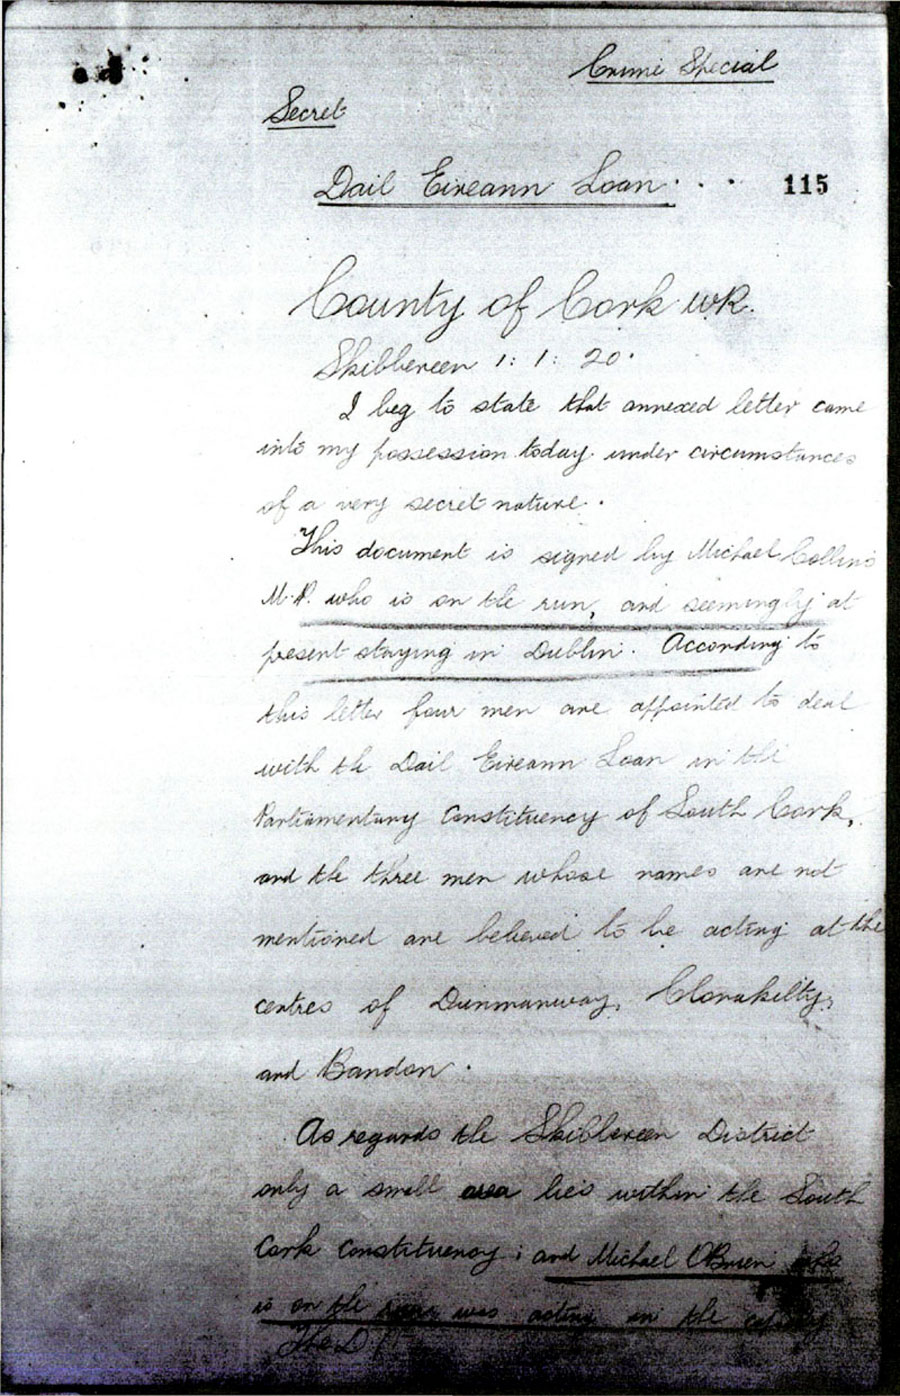 Crime Special
Secret
Dail Eireann Loan . . . 115
County of Cork WR.
Skibbereen 1: 1: 20.
I beg to state that annexed letter came
into my possession today under circumstances
of a very secret nature.
This document is signed by Michael Collins
M.P. who is on the run, and seemingly at
present staying in Dublin. According to
this letter four men are appointed to deal
with the Dail Eireann Loan in the
Parliamentary Constituency of South Cork,
and the three men whose names are not
mentioned are believed to be acting at the
centres of Dunmanway, Clonakilty,
and Bandon.
As regards the Skibbereen District
only a small area lies within the South
Cork Constituency; and Michael OBrien who
is on the run was acting in the
The D